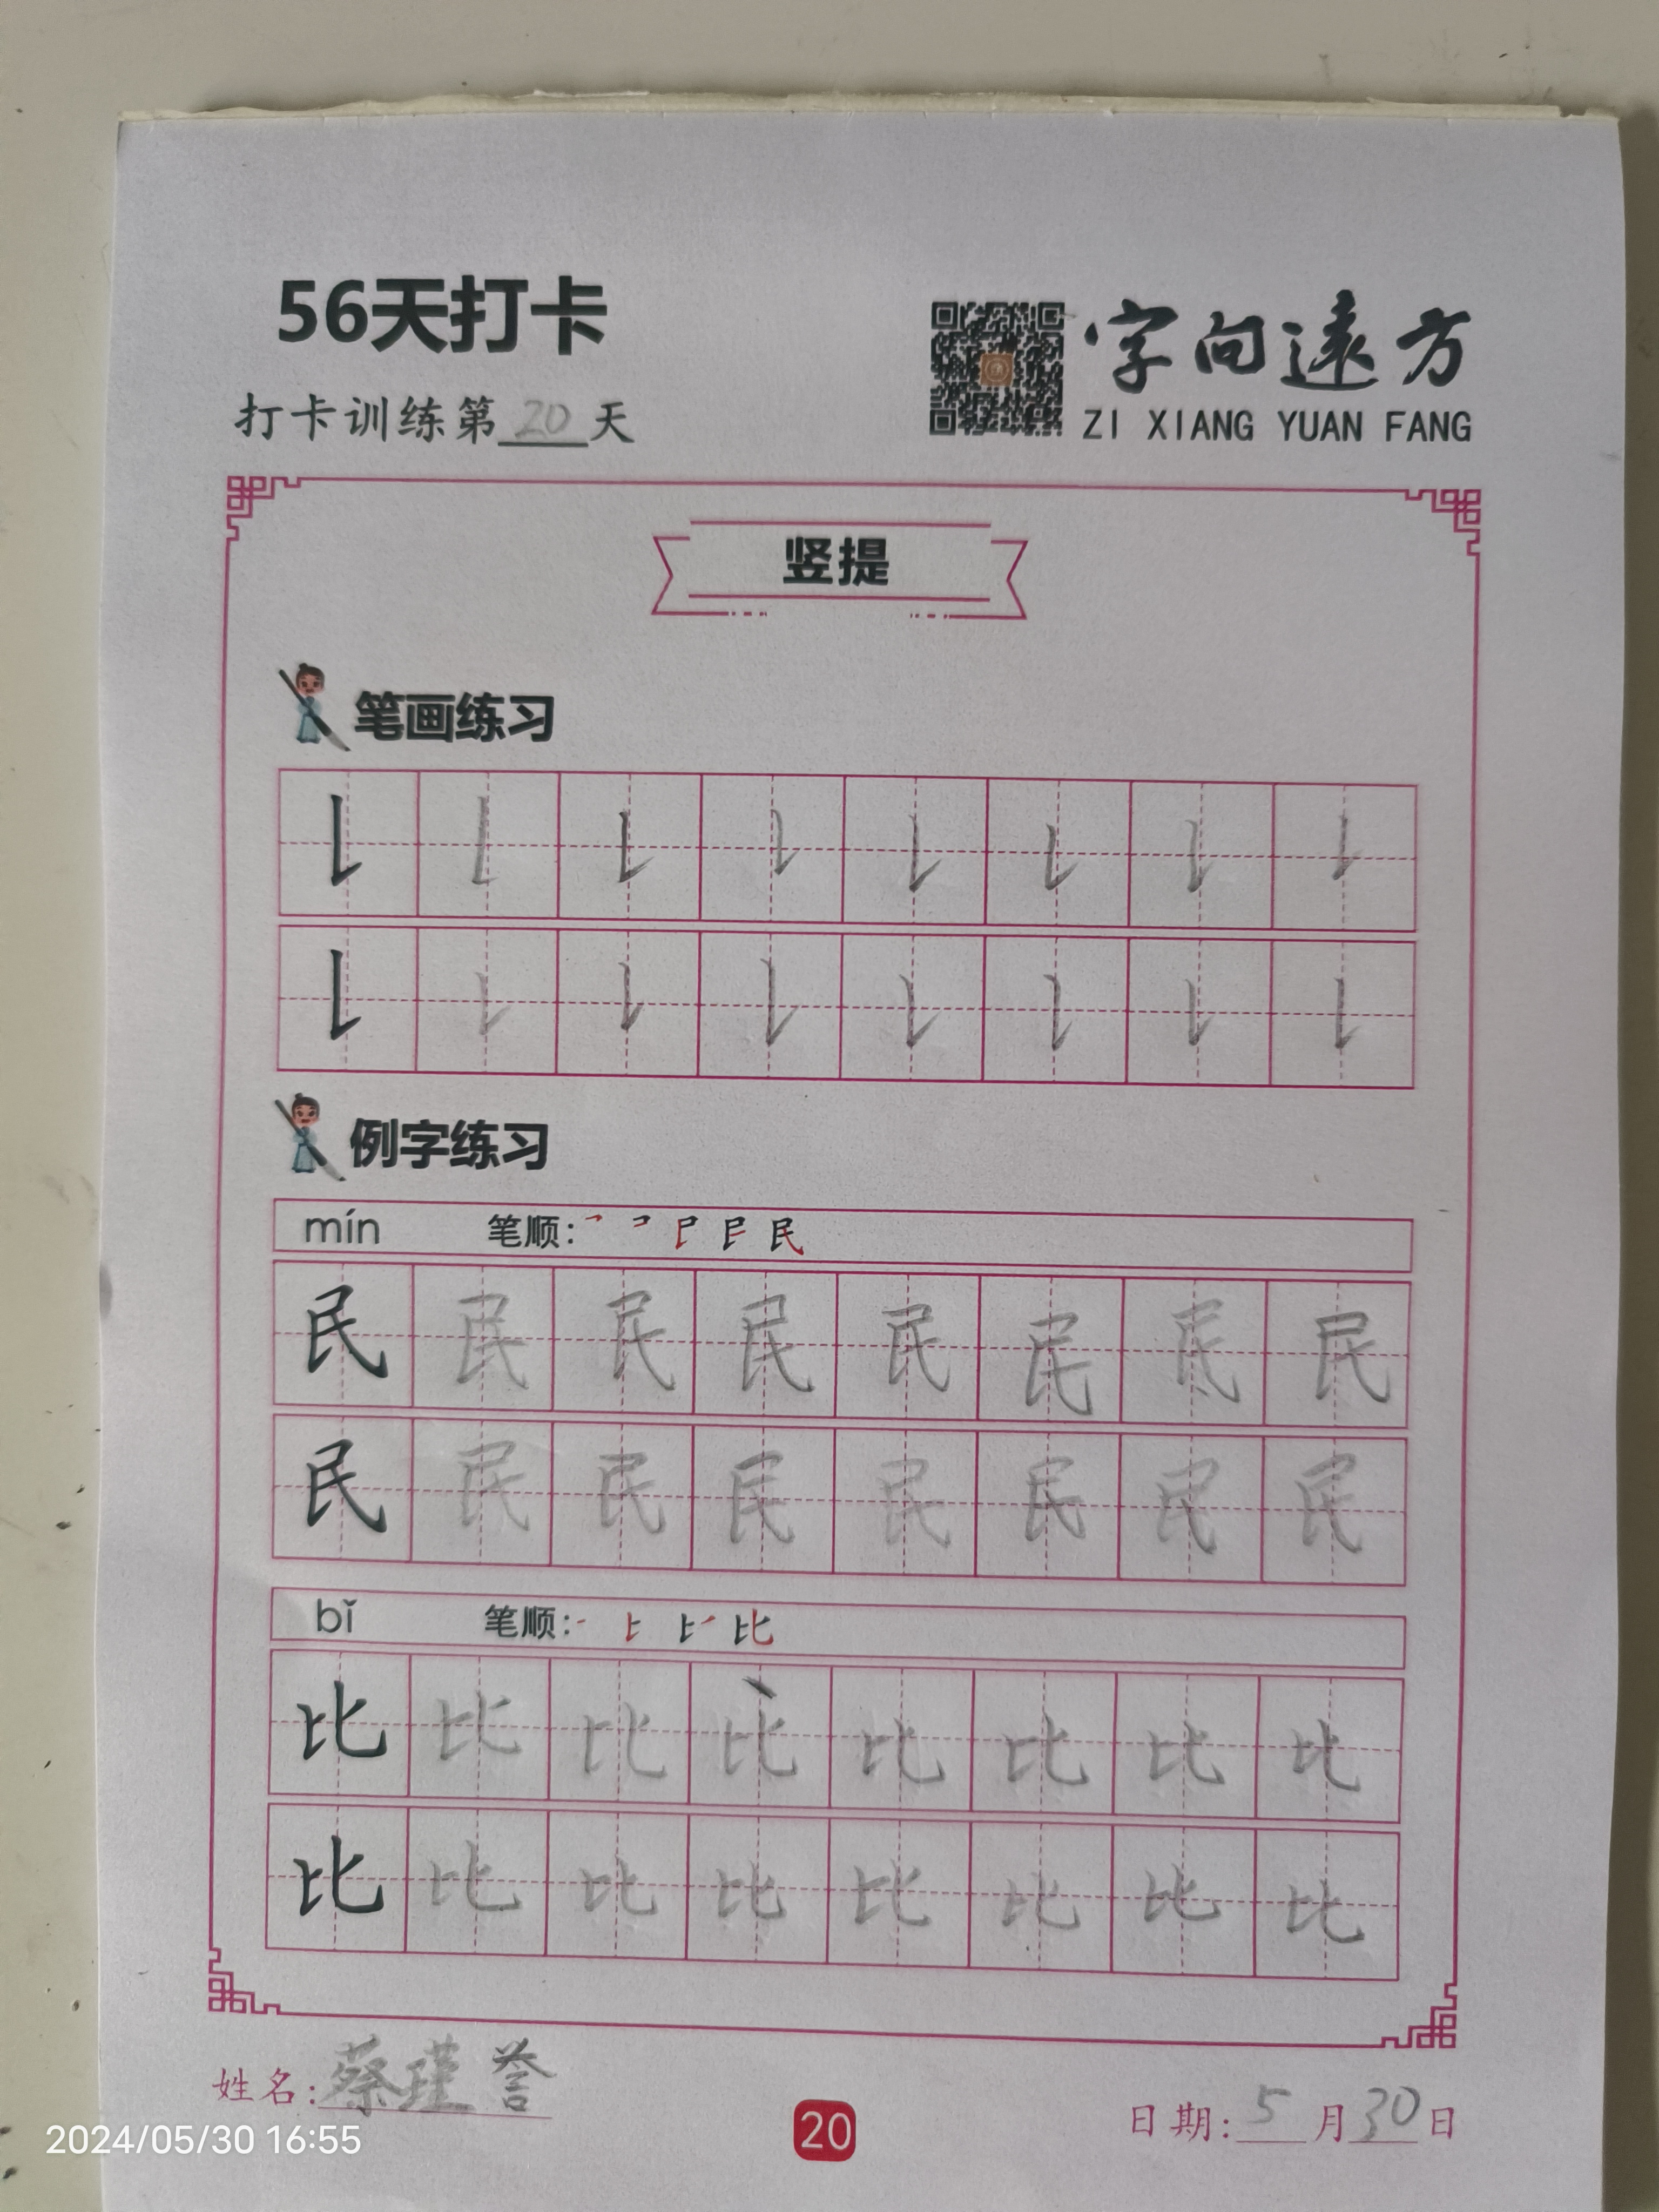 56天打卡
打卡训练第20天
字向遠方
ZI XIANG YUAN FANG
竖提
笔画练习
例字练习
mín 笔顺:
民 民 民 民 民 民 民 民
民 民 民 民 民 民 民 民
bǐ 笔顺:
比 比 比 比 比 比 比 比
比 比 比 比 比 比 比 比
姓名:蔡瑾誉
20
日期:5月30日
2024/05/30 16:55